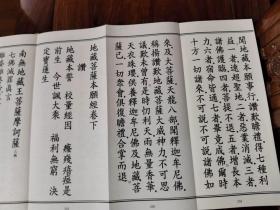 聞地藏本行。讚歎瞻禮得七種利
益一者、速超聖地。二者、惡業消滅。三者、
諸佛護臨。四者、菩提不退。五者、增長本
力。六者、宿命皆通。七者、畢竟成佛。爾時
十方一切諸來。不可說不可說諸佛如
來及大菩薩天龍八部。聞釋迦牟尼佛。
稱揚讚歎地藏菩薩大威神力不可思
議。歎未曾有。是時忉利天雨無量香華。
天衣珠瓔。供養釋迦牟尼佛及地藏菩
薩已。一切眾會俱復瞻禮合掌而退。
地藏菩薩本願經卷下
讚
地藏本誓 校量經因 癃殘瘖瘂是
前生 今世誦大乘 福利無窮 決
定寶蓮生
南無地藏王菩薩摩訶薩
七佛滅罪真言